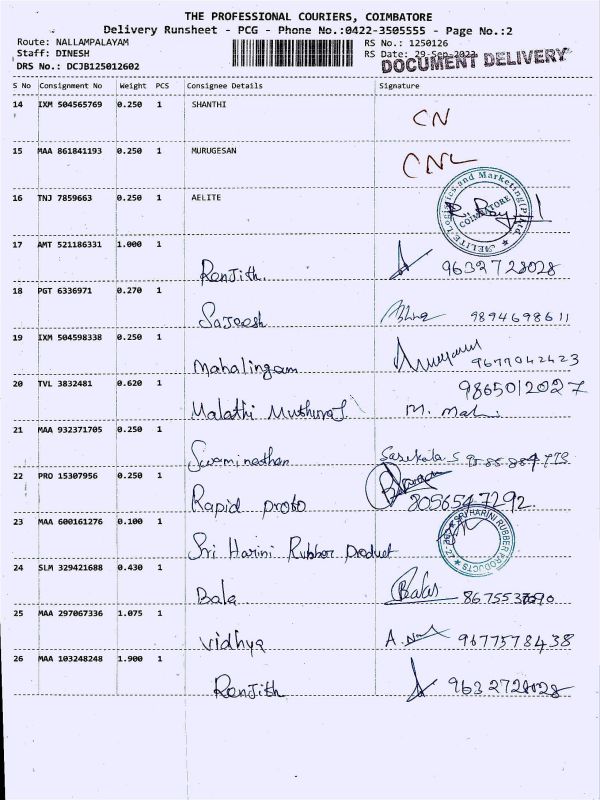 THE PROFESSIONAL COURIERS, COIMBATORE
Delivery Runsheet - PCG - Phone No.:0422-3505555 - Page No.:2
Route: NALLAMPALAYAM RS No.: 1250126
Staff: DINESH RS Date: 29-Sep-2023
DRS No.: DCJB125012602 DOCUMENT DELIVERY
S No Consignment No Weight PCS Consignee Details Signature
14 IXM 504565769 0.250 1 SHANTHI CN
15 MAA 861841193 0.250 1 MURUGESAN CNL
16 TNJ 7859663 0.250 1 AELITE
AELITE Logistics and Marketing (P) Ltd. COIMBATORE
17 AMT 521186331 1.000 1
Renjith. 9632728028
18 PGT 6336971 0.270 1
Sajeesh 9894698611
19 IXM 504598338 0.250 1
Mahalingam 9677042423
20 TVL 3832481 0.620 1 9865012027
Malathi M.
21 MAA 932371705 0.250 1
Swaminathan Sasikala.S
22 PRO 15307956 0.250 1
Rapid proto 8056547292
23 MAA 600161276 0.100 1
SRI HARINI RUBBER PRODUCTS
Sri Harini Rubber Product
24 SLM 329421688 0.430 1
Bala
25 MAA 297067336 1.075 1
Vidhya 9677578438
26 MAA 103248248 1.900 1
Renjith 9632728028